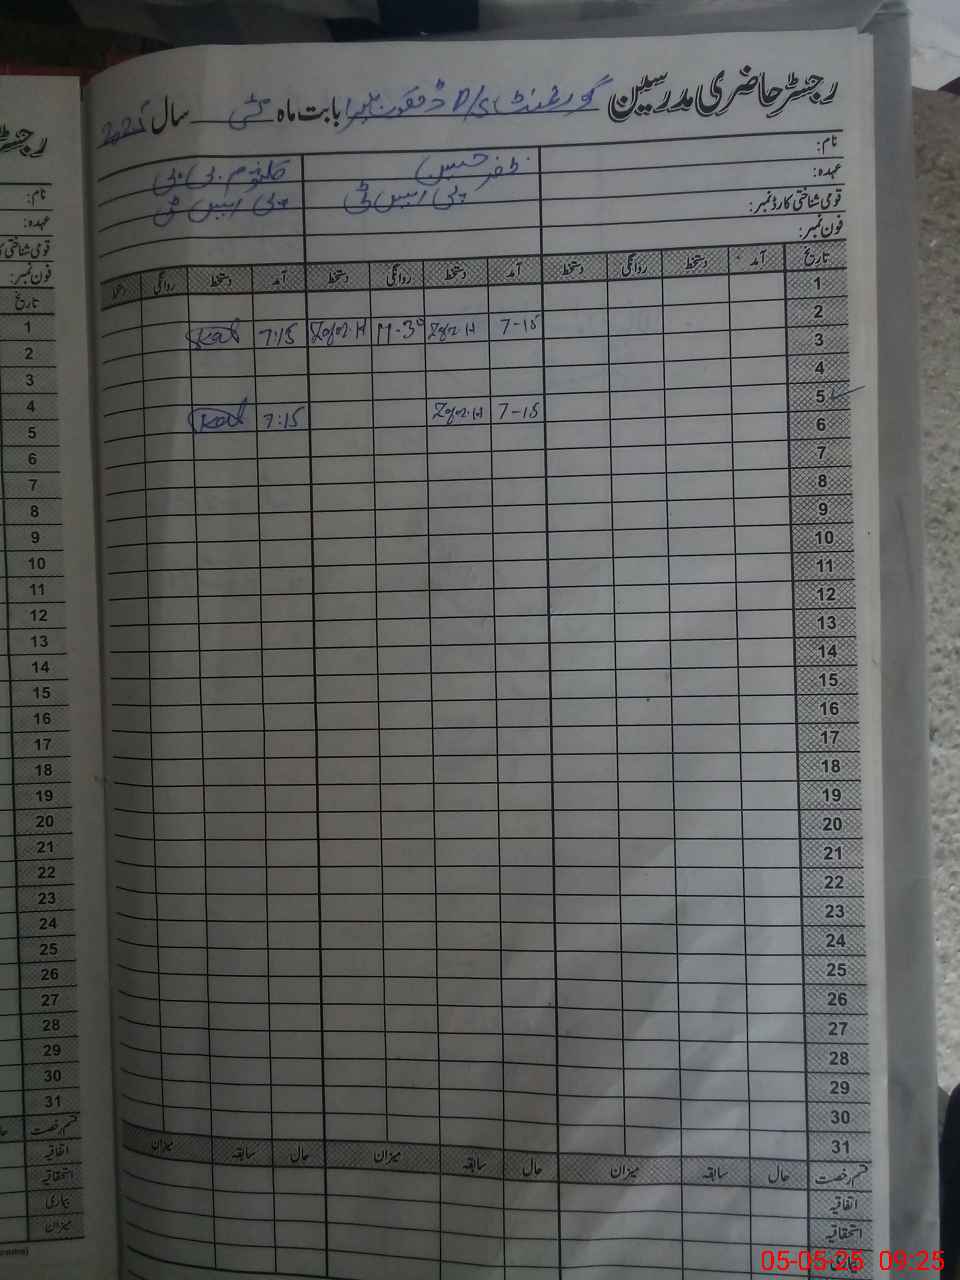 رجسٹر حاضری مدرسین گورنمنٹ P/S بابت ماہ مئی سال 2025
نام: ظفر حسین کلثوم بی بی
عہدہ: پی ایس ٹی پی ایس ٹی
قومی شناختی کارڈ نمبر:
فون نمبر:
تاریخ آمد دستخط روانگی دستخط آمد دستخط روانگی دستخط آمد دستخط روانگی دستخط
1
2
3 7-15 Zafar.H 11-30 Zafar.H 7:15
4
5 7-15 Zafar.H 7:15
6
7
8
9
10
11
12
13
14
15
16
17
18
19
20
21
22
23
24
25
26
27
28
29
30
31
قسم رخصت حال سابقہ میزان حال سابقہ میزان حال سابقہ میزان
اتفاقیہ
استحقاقیہ
بیماری
رجسٹر
نام:
عہدہ:
قومی شناختی کا
فون نمبر:
تاریخ
1
2
3
4
5
6
7
8
9
10
11
12
13
14
15
16
17
18
19
20
21
22
23
24
25
26
27
28
29
30
31
قسم رخصت
اتفاقیہ
استحقاقیہ
بیماری
میزان
05-05-25 09:25